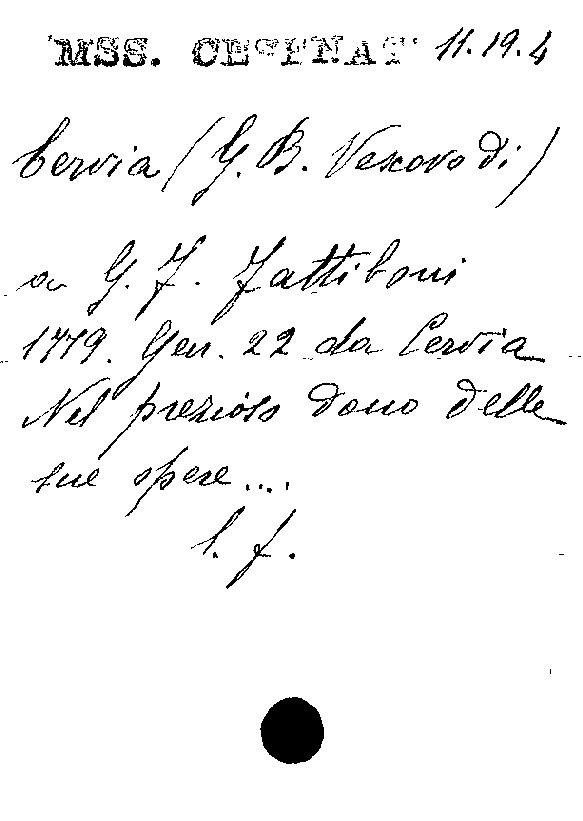 MSS. CESENAT 11.19.4
Cervia (G. B. Vescovo di)
a G. F. Fattiboni
1779. Gen. 22 da Cervia
Nel prezioso dono delle
sue opere....
l. f.